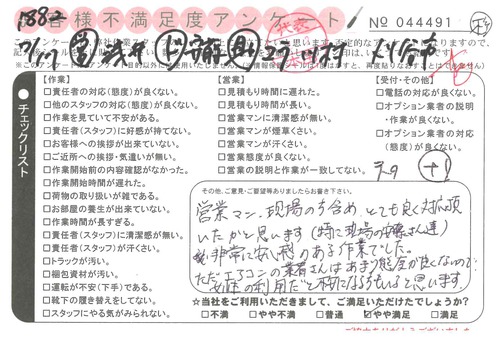 お客様不満足度アンケート
№ 044491
チェックリスト
【作業】
□責任者の対応(態度)が良くない。
□他のスタッフの対応(態度)が良くない。
□作業を見ていて不安がある。
□責任者(スタッフ)に好感が持てない。
□お客様への挨拶が出来ていない。
□ご近所への挨拶・気遣いが無い。
□作業開始前の内容確認がなかった。
□作業開始時間が遅れた。
□荷物の取り扱いが雑である。
□お部屋の養生が出来ていない。
□作業時間が長すぎる。
□責任者(スタッフ)に清潔感が無い。
□責任者(スタッフ)が汗くさい。
□トラックが汚い。
□梱包資材が汚い。
□運転が不安(下手)である。
□靴下の履き替えをしてない。
□スタッフにやる気がみられない。
【営業】
□見積もり時間に遅れた。
□見積もり時間が長い。
□営業マンに清潔感が無い。
□営業マンが煙草くさい。
□営業マンが汗くさい。
□営業態度が良くない。
□営業の説明と作業が一致してない。
【受付・その他】
□電話の対応が良くない。
□オプション業者の説明
・作業が良くない。
□オプション業者の対応
(態度)が良くない。
その他、ご意見・ご要望等ありましたらお書き下さい。
営業マン、現場の方含め、とても良く対応頂
いたかと思います(特に現場の
非常に安心感のある作業でした。
ただエアコンの業者さんはあまり態度が良くないので
思います。
☆当社をご利用いただきまして、ご満足いただけたでしょうか?
□不満 □やや不満 □普通 ☑やや満足 □満足